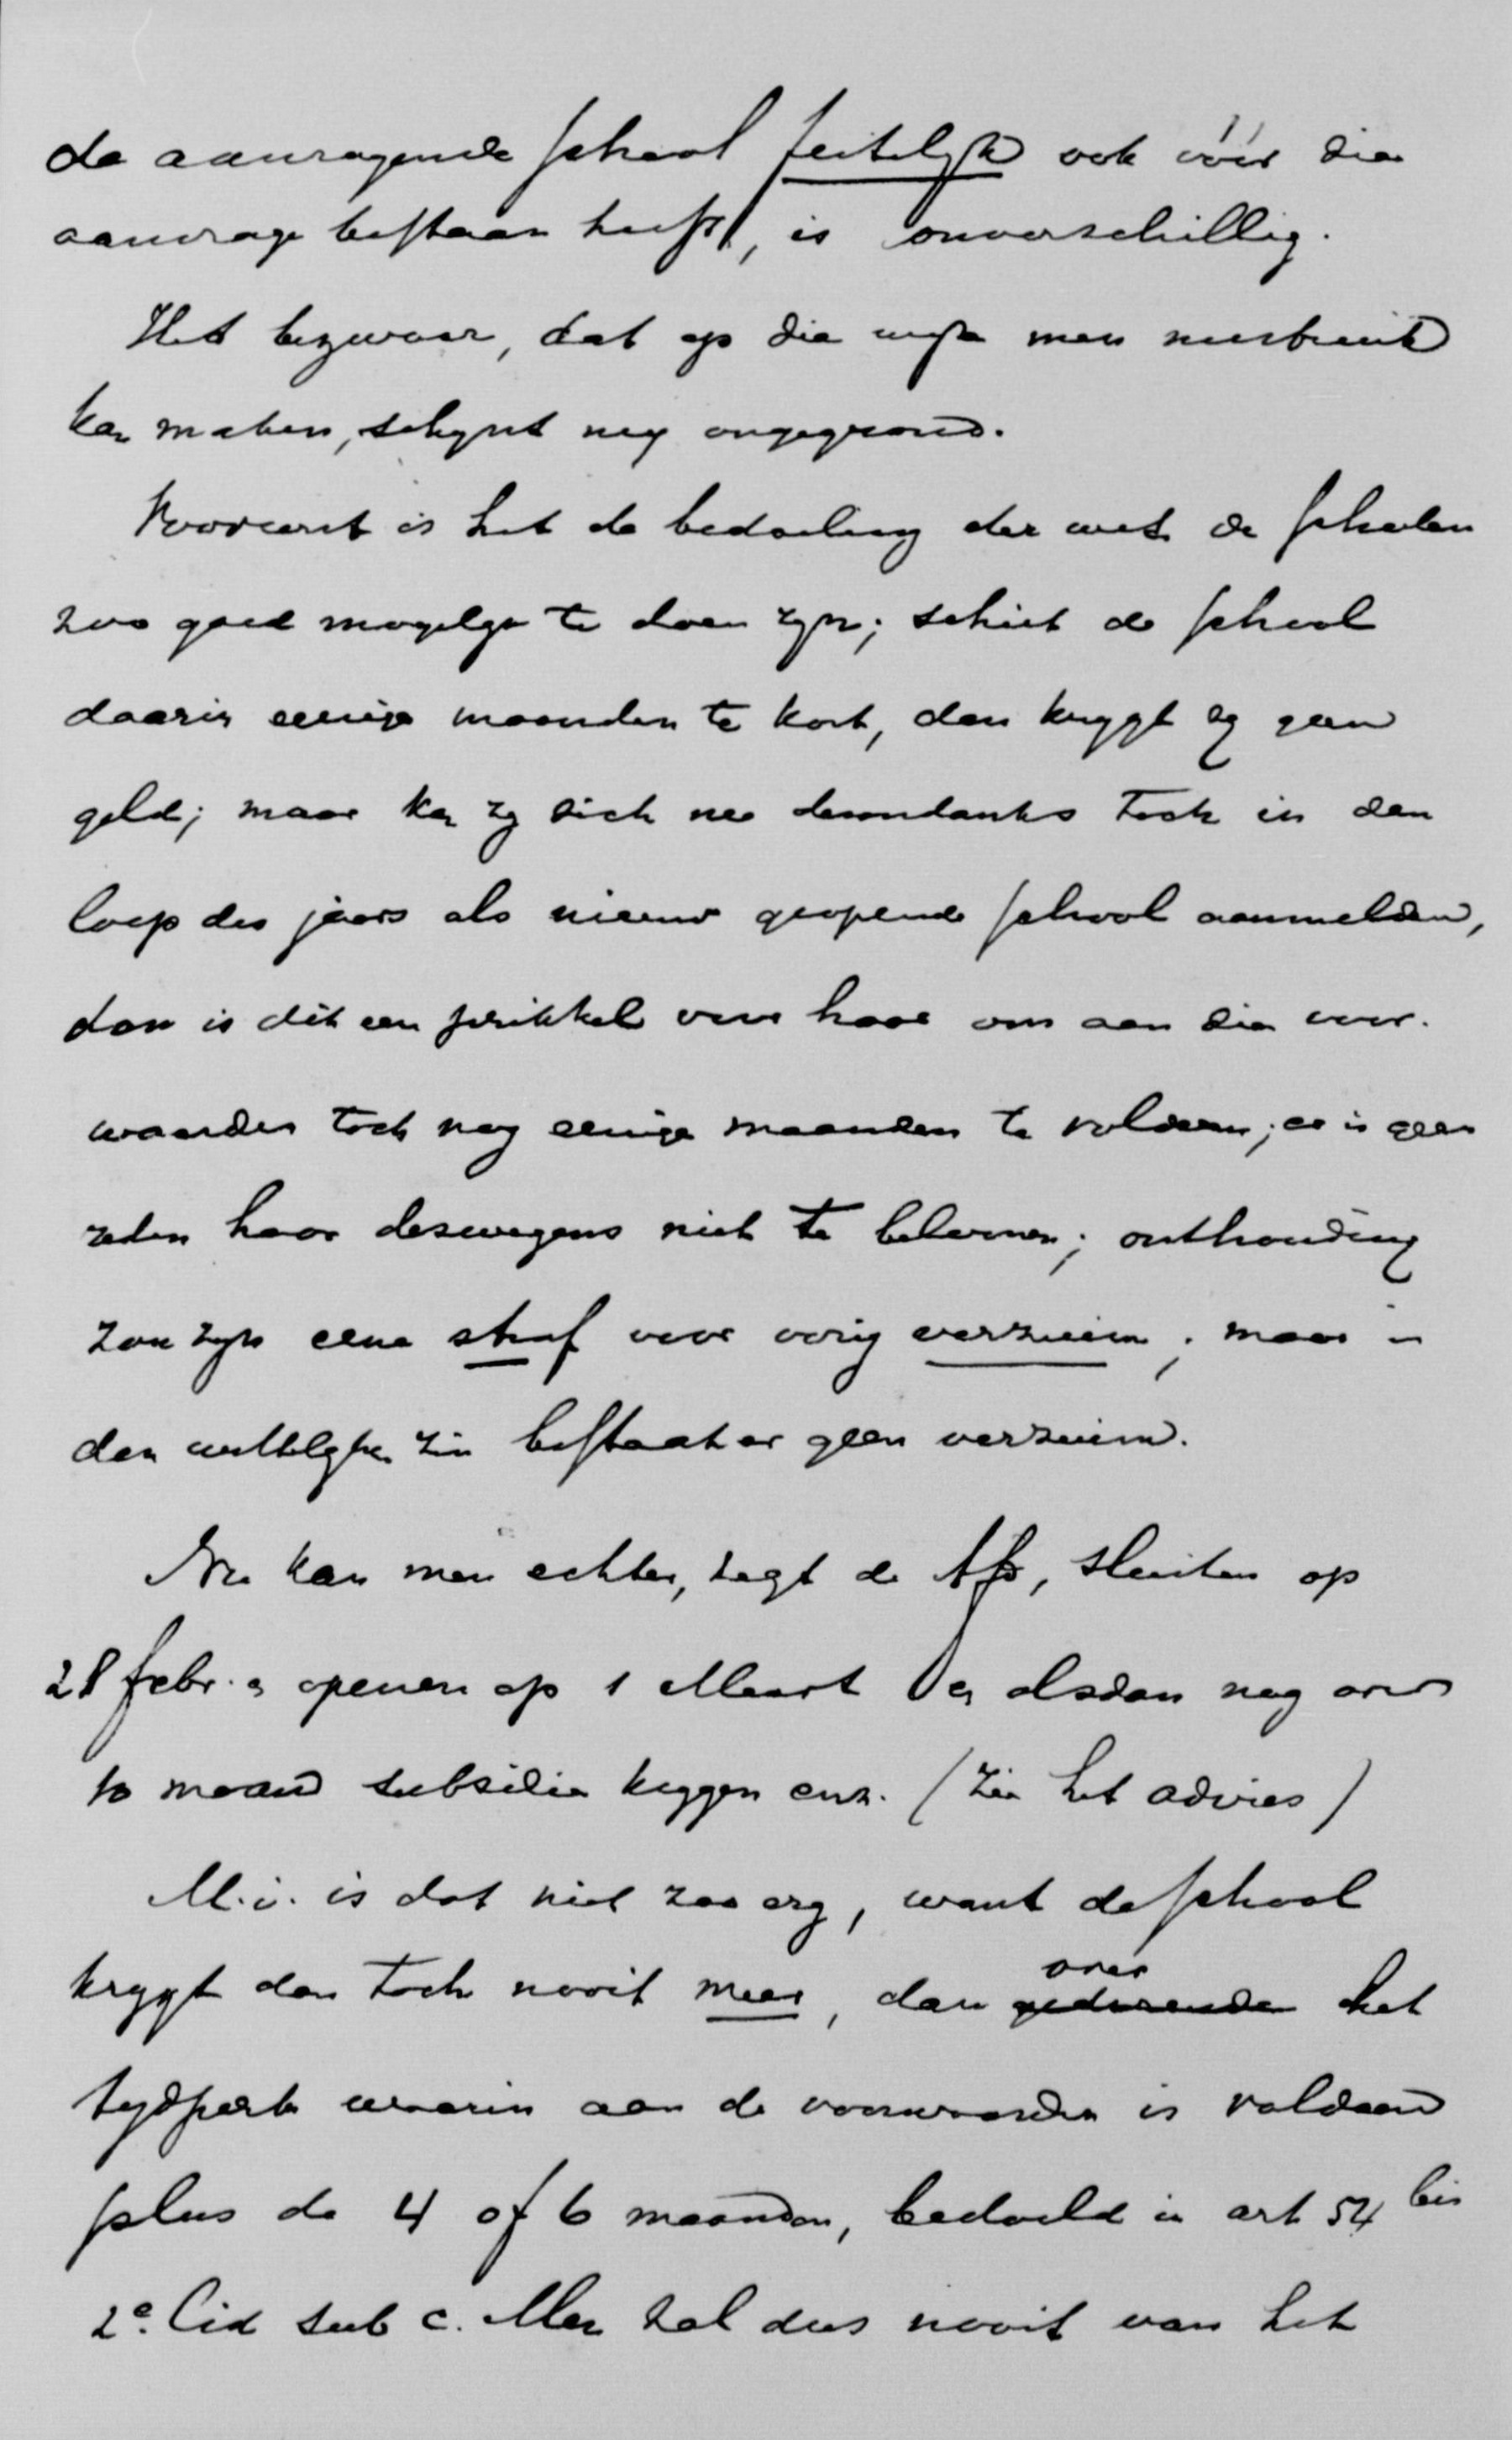 de aanvragende school feitelijk ook vóór die
aanvrage bestaan heeft, is onverschillig.
Het bezwaar, dat op die wijze men misbruik
kan maken, schijnt mij ongegrond.
Vooreerst is het de bedoeling der wet de scholen
zoo goed mogelijk te doen zijn; schiet de school
daarin eenige maanden te kort, dan krijgt zij geen
geld; maar kan zij zich nu desondanks toch in den
loop des jaars als nieuw geopende school aanmelden,
dan is dit een prikkel voor haar om aan die voor-
waarden toch nog eenige maanden te voldoen; er is geen
reden haar deswegens niet te beloonen; onthouding
zou zijn eene straf voor vorig verzuim; maar in
den wettelijken zin bestaat er geen verzuim.
Nu kan men echter, zegt de Afd, sluiten op
28 febr. en openen op 1 Maart en alsdan nog over
10 maand subsidie krijgen enz. (zie het advies)
M.i. is dat niet zoo erg, want de school
krijgt dan toch nooit meer, dan gedurende over het
tijdperk waarin aan de voorwaarden is voldaan
plus de 4 of 6 maanden, bedoeld in art 54 bis
2e. lid sub c. Men zal dus nooit van het